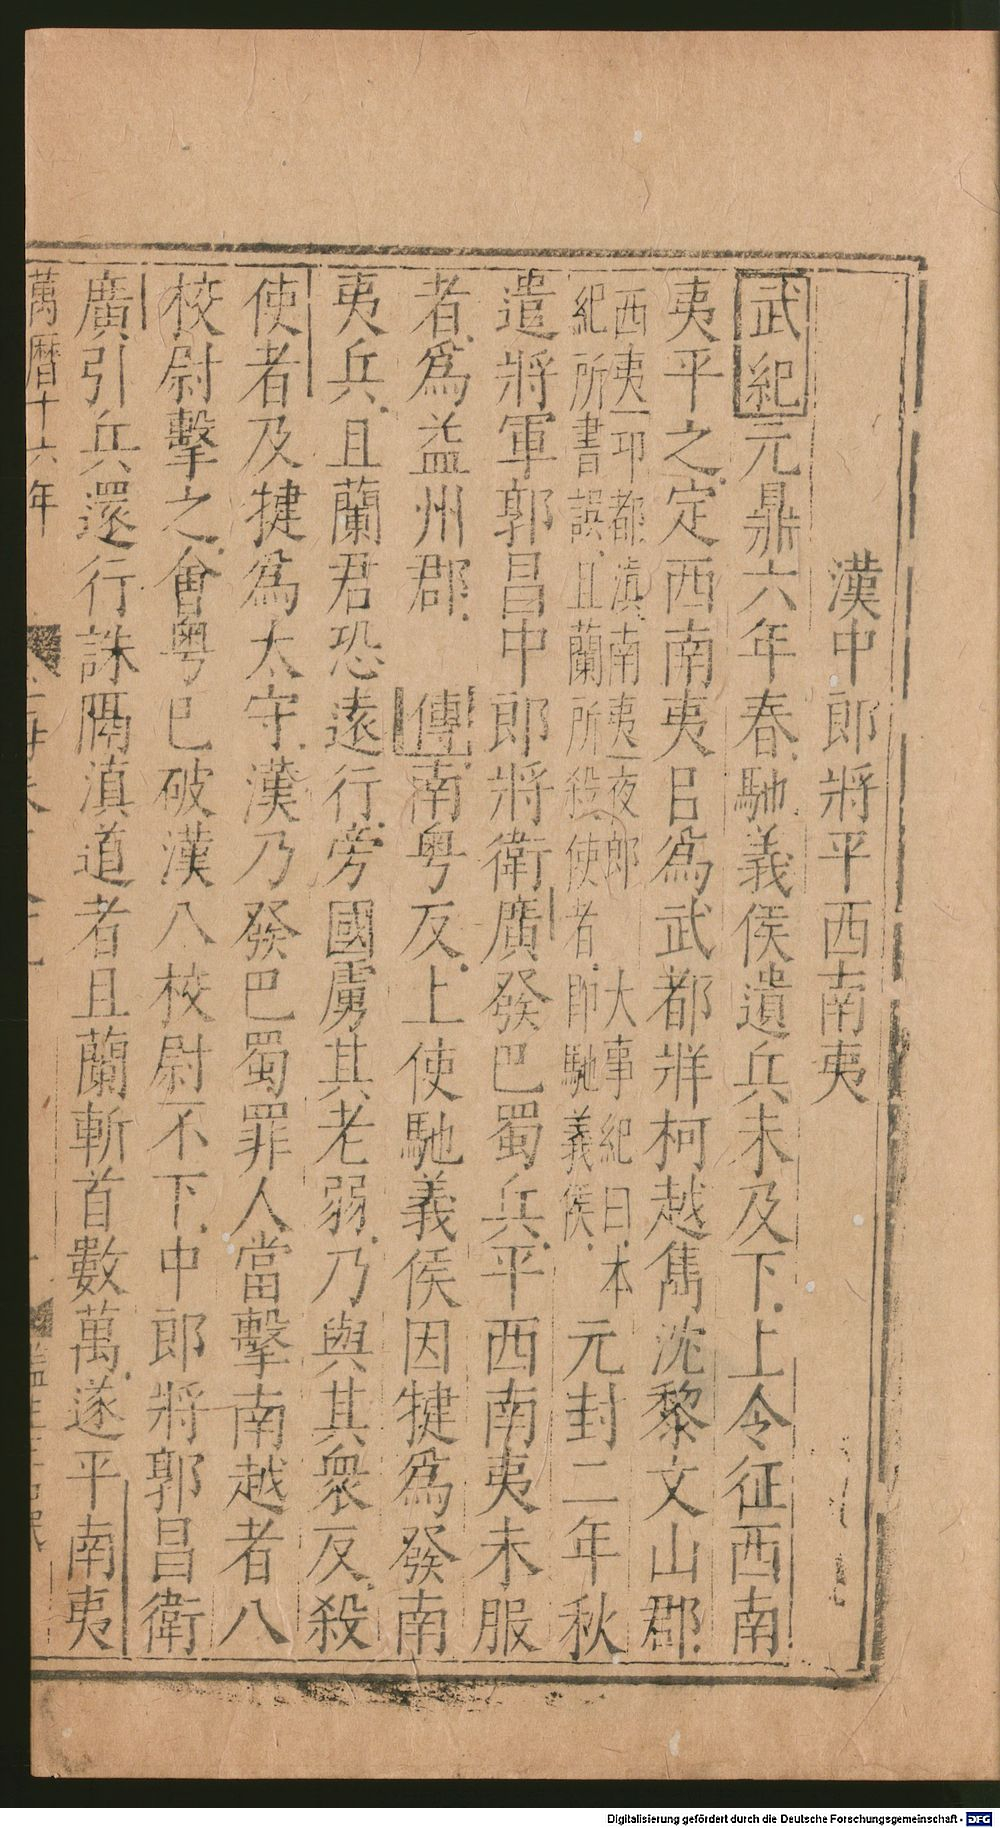 漢中郎將平西南夷
武紀元鼎六年春馳義侯遺兵未及下上令征西南
夷平之定西南夷㠯為武都牂柯越雋沈黎文山郡
西夷邛都滇南夷夜郎 大事紀曰本
紀所書誤且蘭所殺使者即馳義侯 元封二年秋
遣將軍郭昌中郎將衛廣發巴蜀兵平西南夷未服
者為益州郡 傳南粤反上使馳義侯因犍為發南
夷兵且蘭君恐遠行旁國虜其老弱乃與其衆反殺
使者及犍為太守漢乃發巴蜀罪人當擊南越者八
校尉擊之會粤已破漢八校尉不下中郎將郭昌衛
廣引兵還行誅隔滇道者且蘭斬首數萬遂平南夷
萬曆十六年
Digitalisierung gefördert durch die Deutsche Forschungsgemeinschaft - DFG